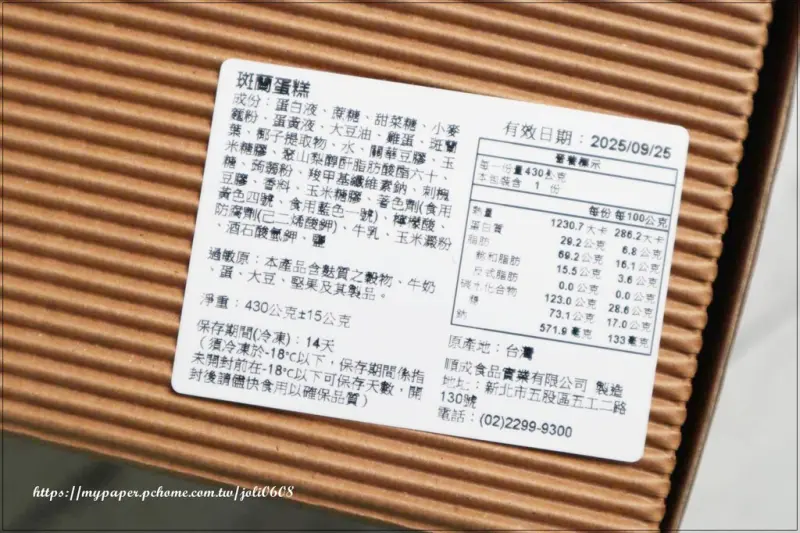 斑蘭蛋糕
成份：蛋白液、蔗糖、甜菜糖、小麥
麵粉、蛋黃液、大豆油、雞蛋、斑蘭
葉、椰子提取物、水、關華豆膠、玉
米糖膠、聚山梨醇酐脂肪酸酯六十、
糖、蒟蒻粉、羧甲基纖維素鈉、刺槐
豆膠、香料、玉米糖膠、著色劑(食用
黃色四號、食用藍色一號)、檸檬酸、
防腐劑(己二烯酸鉀)、牛乳、玉米澱粉
、酒石酸氫鉀、鹽
過敏原：本產品含麩質之穀物、牛奶
、蛋、大豆、堅果及其製品。
淨重：430公克±15公克
保存期間(冷凍)：14天
(須冷凍於-18°C以下，保存期間係指
未開封前在-18°C以下可保存天數，開
封後請儘快食用以確保品質)
有效日期：2025/09/25
營養標示
每一份量430公克
本包裝含 1 份
每份 每100公克
熱量 1230.7大卡 286.2大卡
蛋白質 29.2公克 6.8公克
脂肪 69.2公克 16.1公克
飽和脂肪 15.5公克 3.6公克
反式脂肪 0.0公克 0.0公克
碳水化合物 123.0公克 28.6公克
糖 73.1公克 17.0公克
鈉 571.9毫克 133毫克
原產地：台灣
順成食品實業有限公司 製造
地址：新北市五股區五工二路
130號
電話：(02)2299-9300
https://mypaper.pchome.com.tw/joli0608